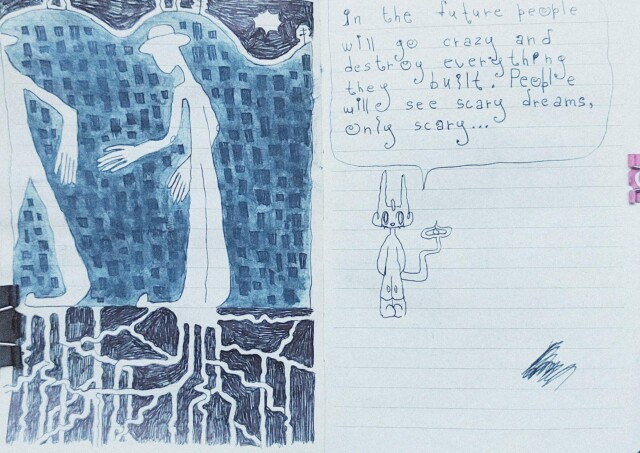 In the future people
will go crazy and
destroy everything
they built. People
will see scary dreams,
only scary...